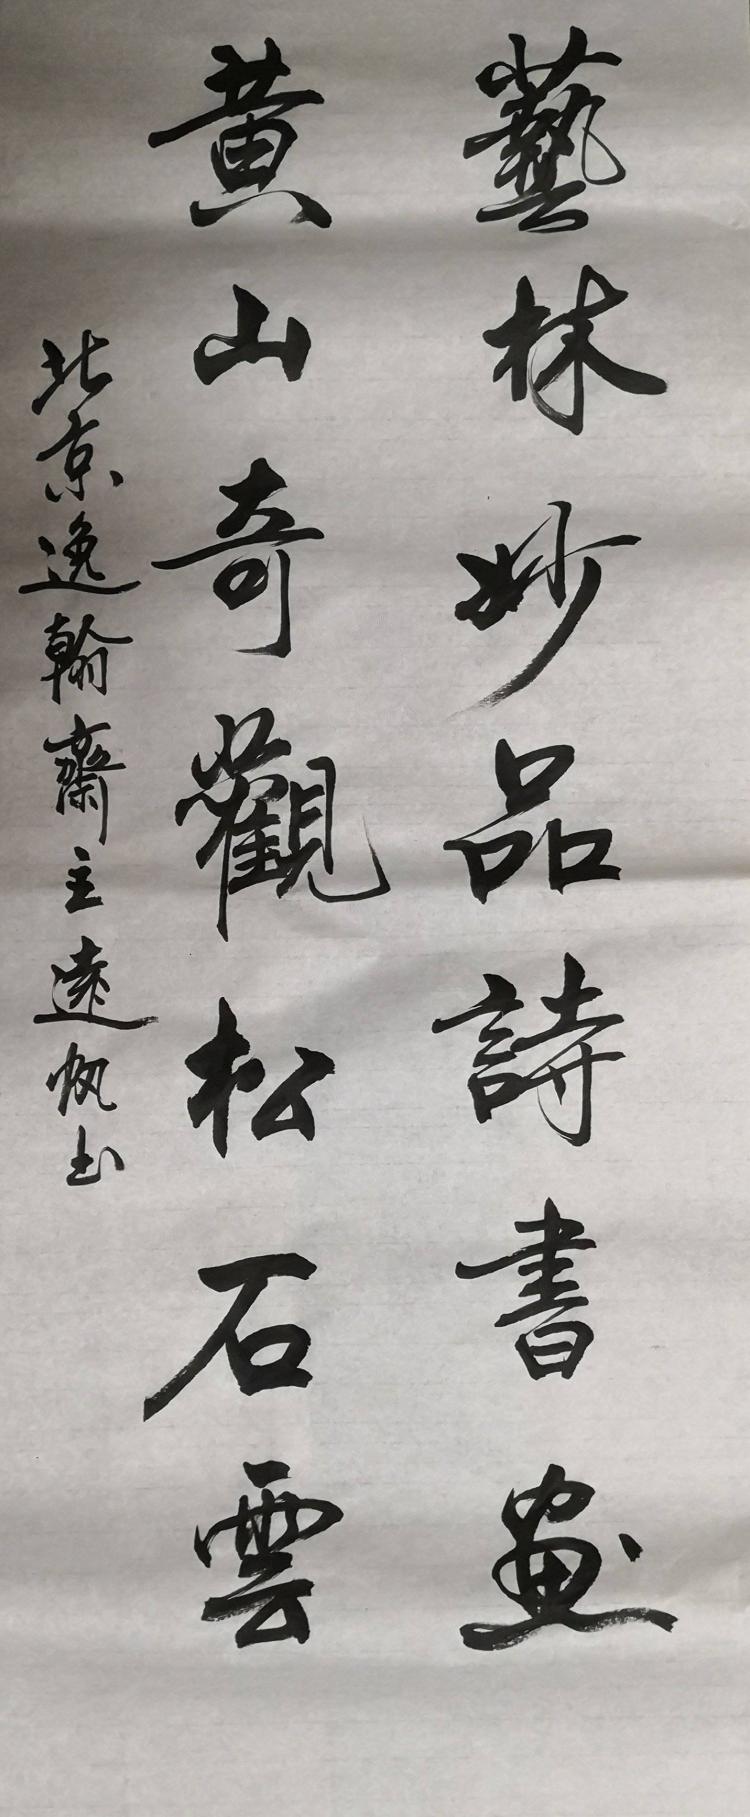 藝林妙品詩書畫
黄山奇觀松石雲
北京逸翰齋主遠帆书